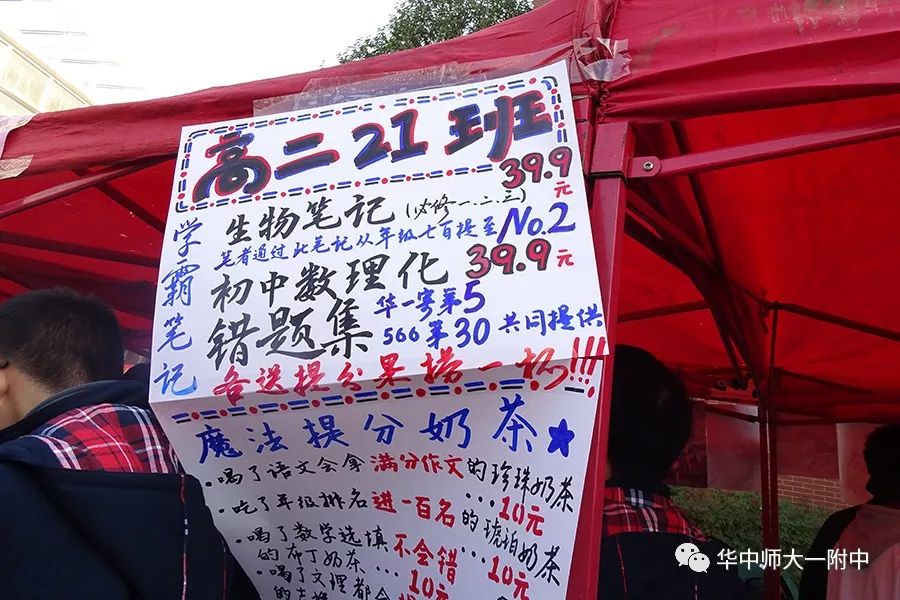 高二21班
学霸笔记
生物笔记(必修一.二.三) 39.9元
笔者通过此笔记从年级七百提至No.2
初中数理化 39.9元
错题集 华一寄第5
500第30 共同提供
各送提分果捞一杯!!!
魔法提分奶茶★
·喝了语文会拿满分作文的珍珠奶茶
...10元
·吃了年级排名进一百名的琥珀奶茶
...10元
·喝了数学选填不会错
的布丁奶茶...10元
·喝了文理都会
华中师大一附中